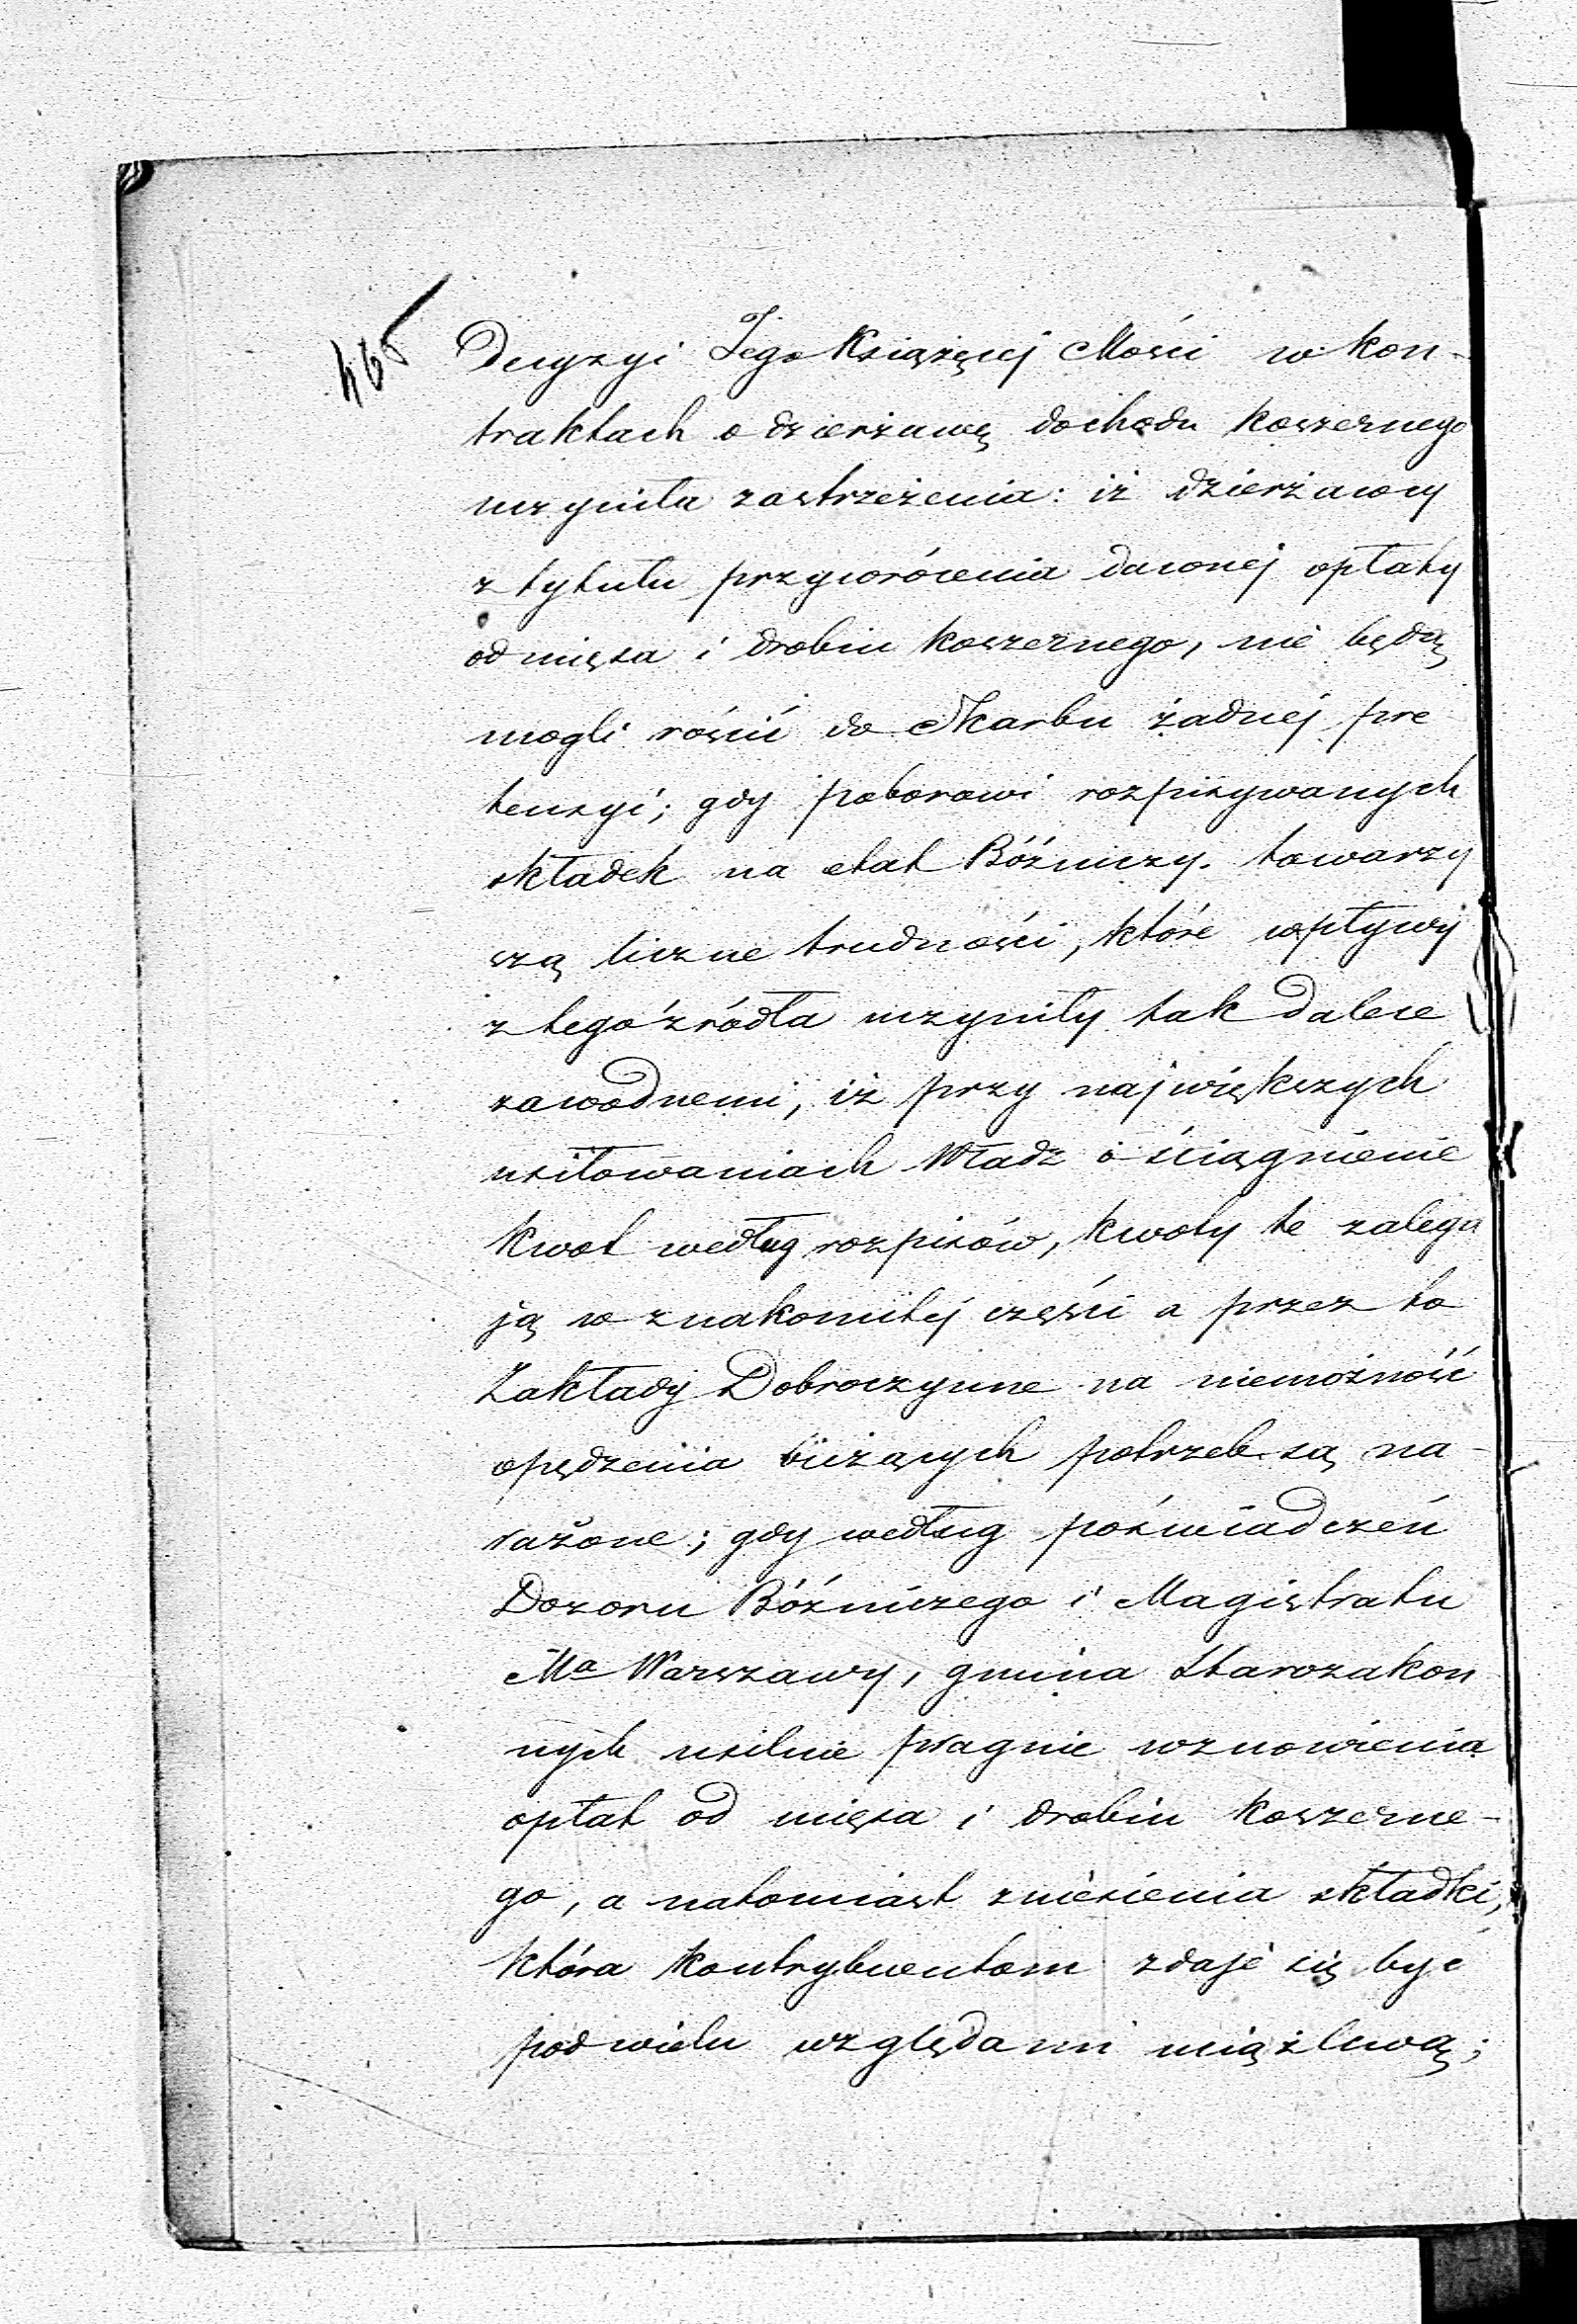 Decyzyi Jego Książęcej Mości w kon-
traktach o dzierżawę dochodu koszernego
uczyniła zastrzeżenia: iż dzierżawcy
z tytułu przywrócenia dawnej opłaty
od mięsa i drobiu koszernego, nie będą
mogli rościć do Skarbu żadnej pre
tensyi; gdy poborowi rozpisywanych
składek na etat Bóźniczy towarzy
szą liczne trudności, które wpływy
z tego źródła uczyniły tak dalece
zawodnemi, iż przy największych
usiłowaniach Władz o ściągnienie
kwot według rozpisów, kwoty te zalega
ją w znakomitej części a przez to
Zakłady Dobroczynne na niemożność
opędzenia bieżących potrzeb są na-
rażone; gdy według poświadczeń
Dozoru Bóźniczego i Magistratu
Ma Warszawy, gmina Starozakon
nych usilnie pragnie wznowienia
opłat od mięsa i drobiu koszerne-
go, a natomiast zniesienia składki,
która kontrybuentom zdaje się być
pod wielu względami uciążliwą;